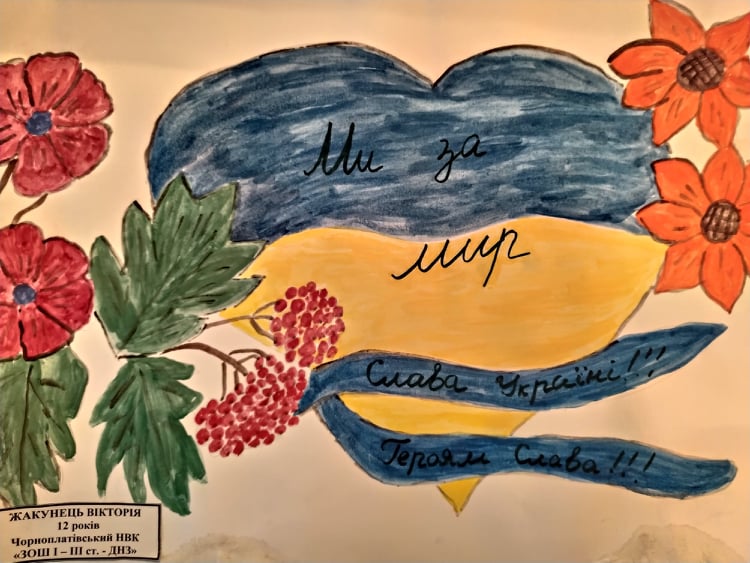 Ми за
мир
Слава Україні!!!
Героям Слава!!!
ЖАКУНЕЦЬ ВІКТОРІЯ
12 років
Чорноплатівський НВК
«ЗОШ І – ІІІ ст. - ДНЗ»